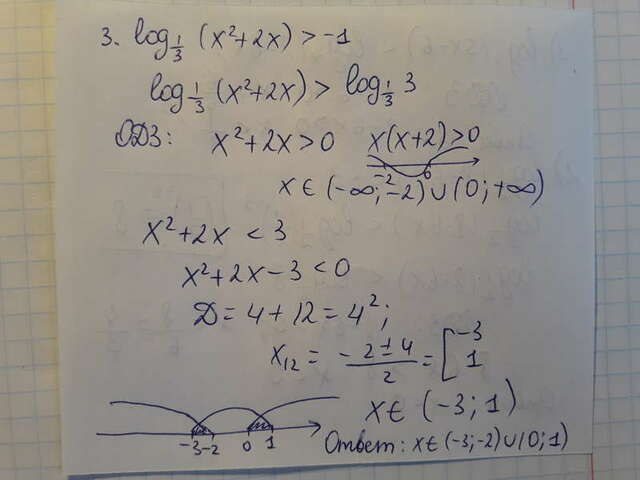 3. log 1/3 (x²+2x) > -1
log 1/3 (x²+2x) > log 1/3 3
ОДЗ: x²+2x>0 x(x+2)>0
-2 0
x ∈ (-∞; -2) ∪ (0; +∞)
x²+2x < 3
x²+2x-3<0
D = 4+12 = 4²;
x₁₂ = (-2±4)/2 = [-3 1
x ∈ (-3; 1)
-3 -2 0 1
Ответ: x ∈ (-3; -2) ∪ (0; 1)